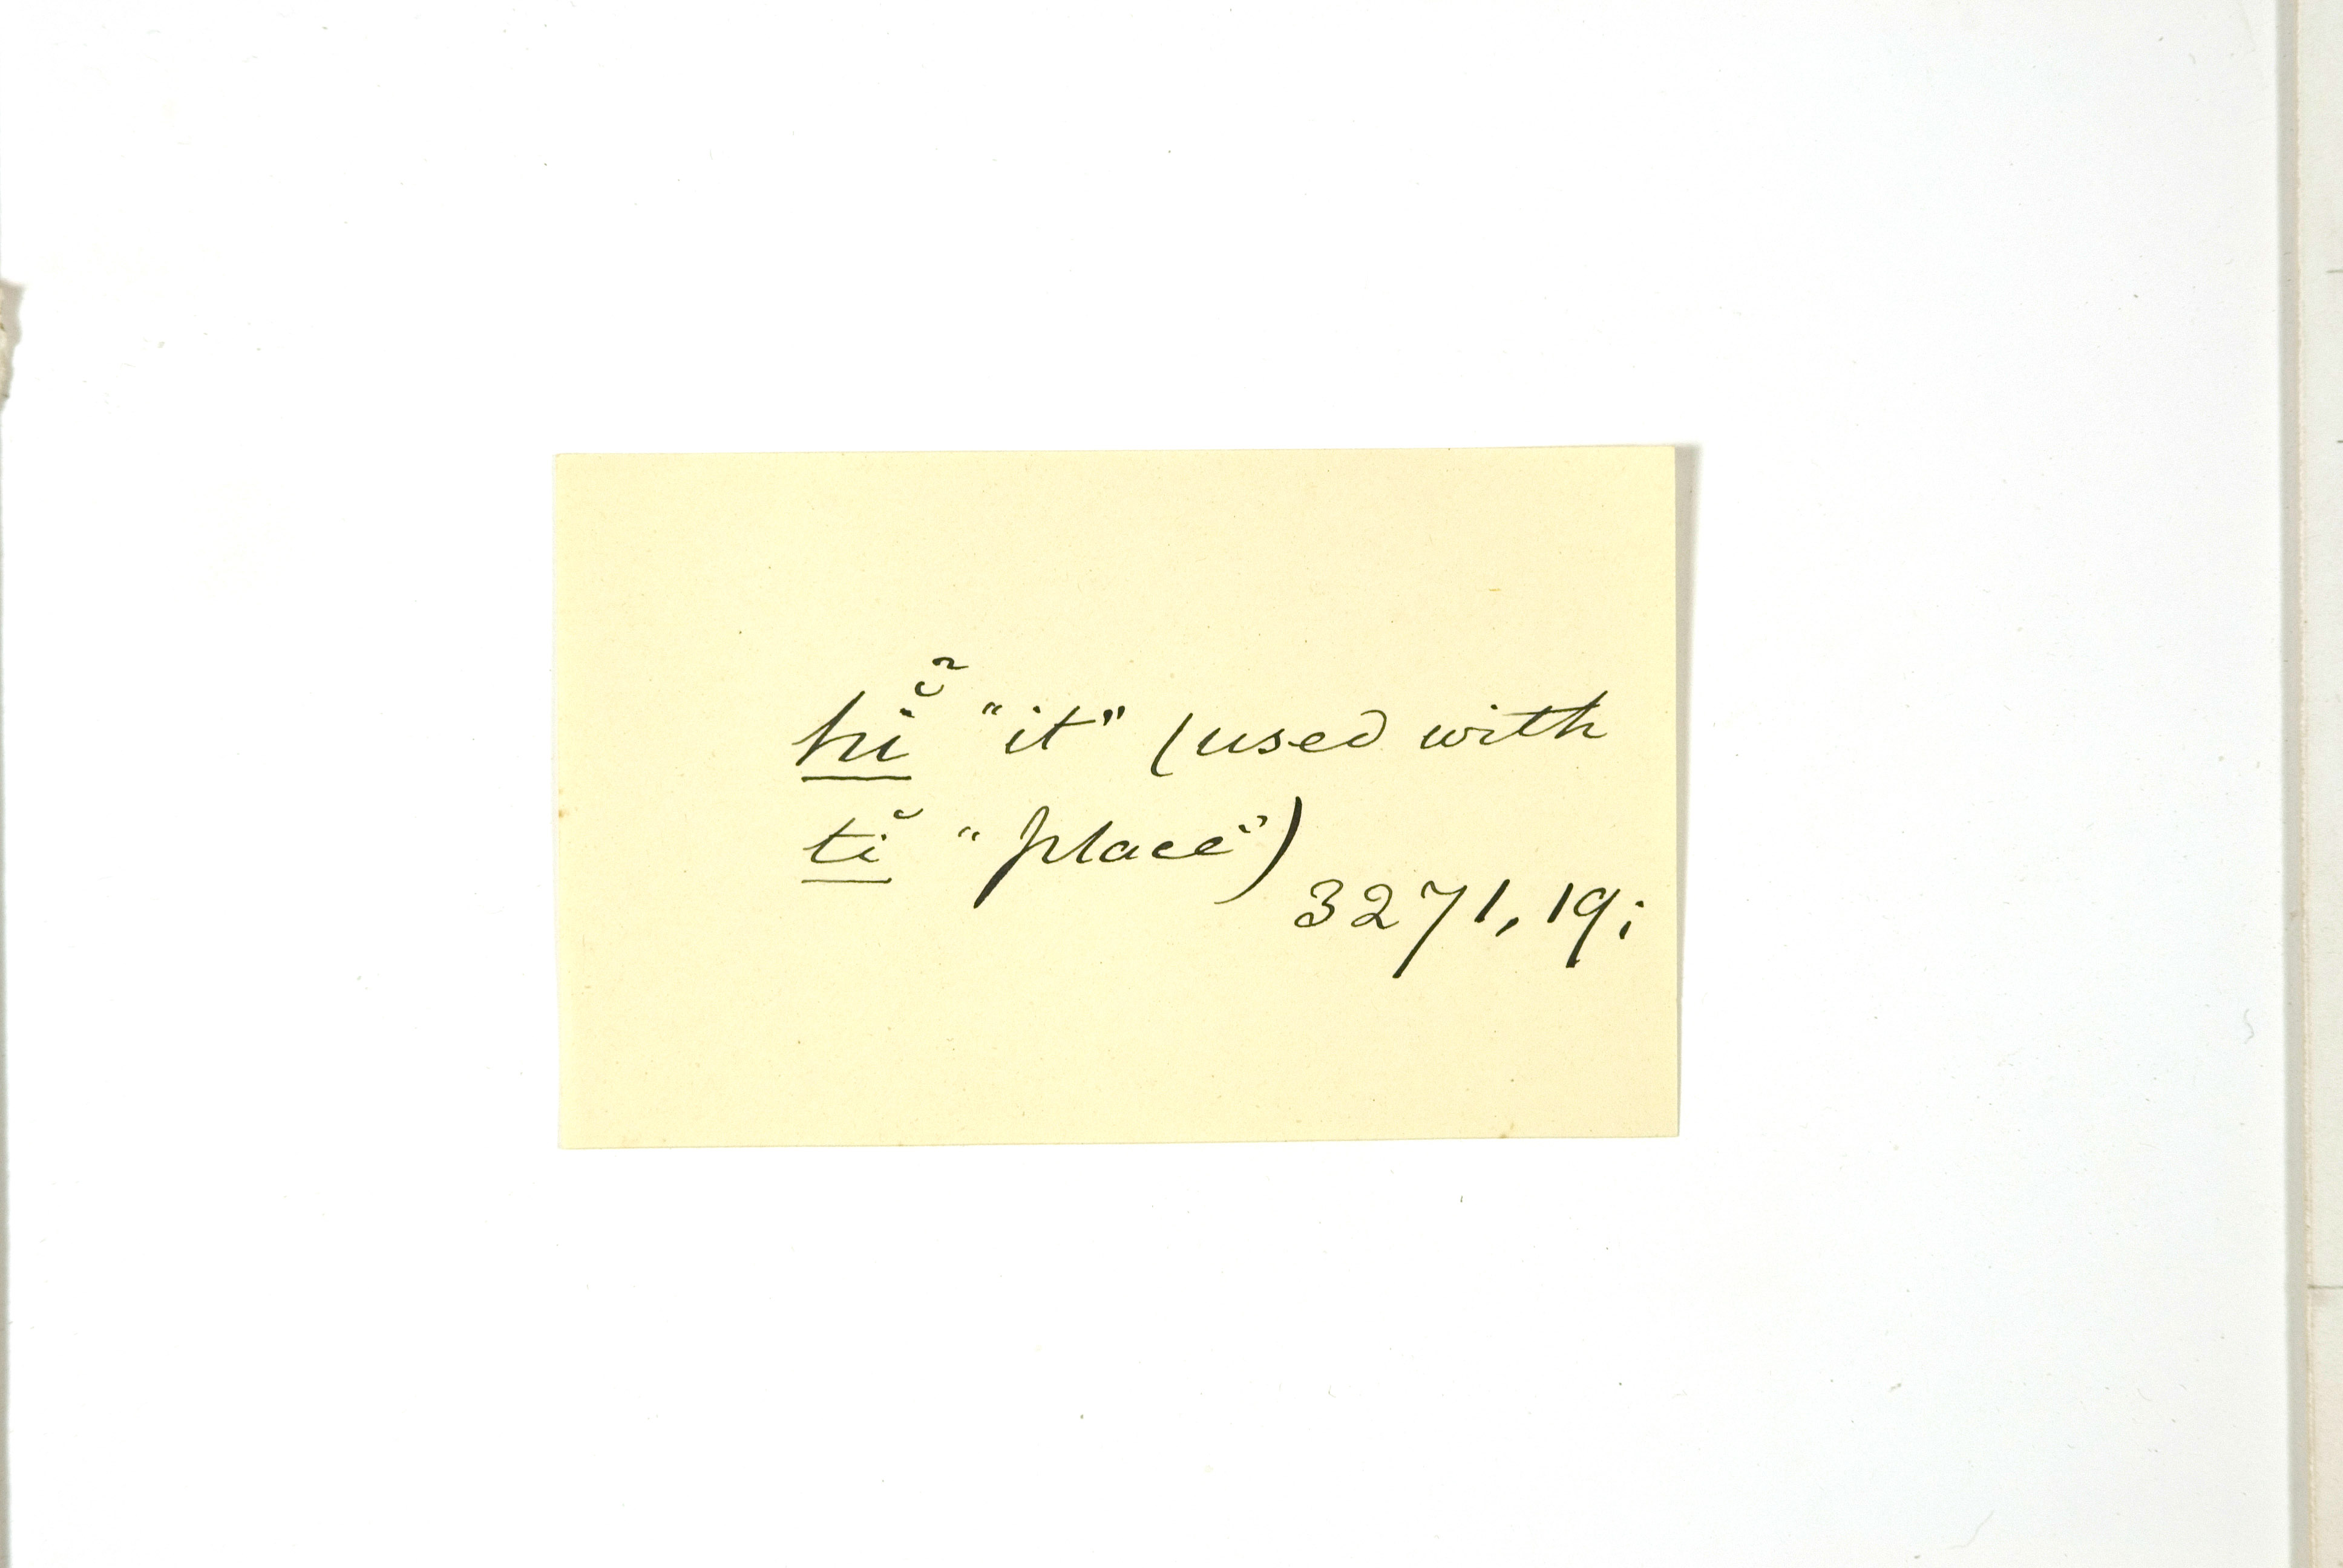 hĭ̃ "it" (used with
tĭ "place")
3271, 19;